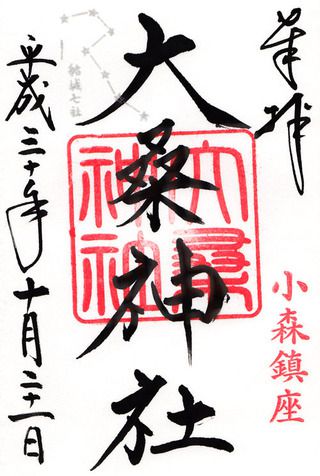 奉拝
小森鎮座
大桑神社
大桑神社
結城七社
平成三十年十月二十一日